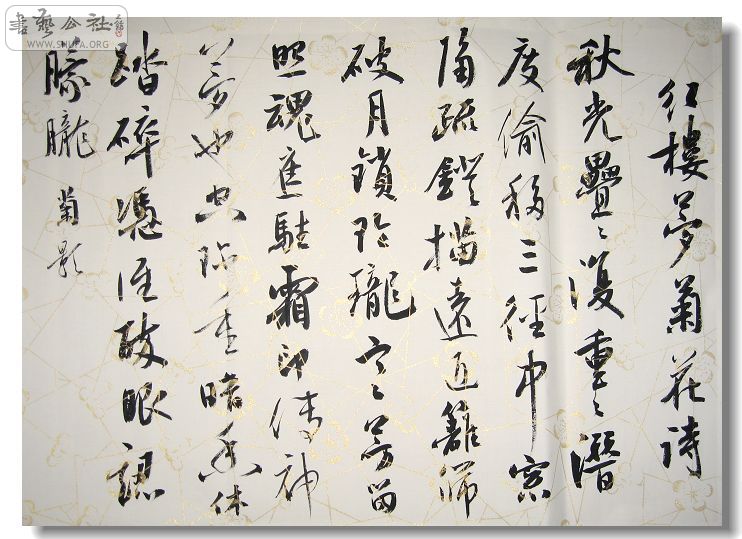 書藝公社
WWW.SHUFA.ORG
紅樓夢菊花詩
秋光疊〻復重〻潛
度偷移三徑中窗
隔疏鐙描遠近籬篩
破月鎖玲瓏寒芳留
照魂應駐霜印傳神
夢也空珍重暗香休
踏碎憑誰醉眼認
朦朧 菊影